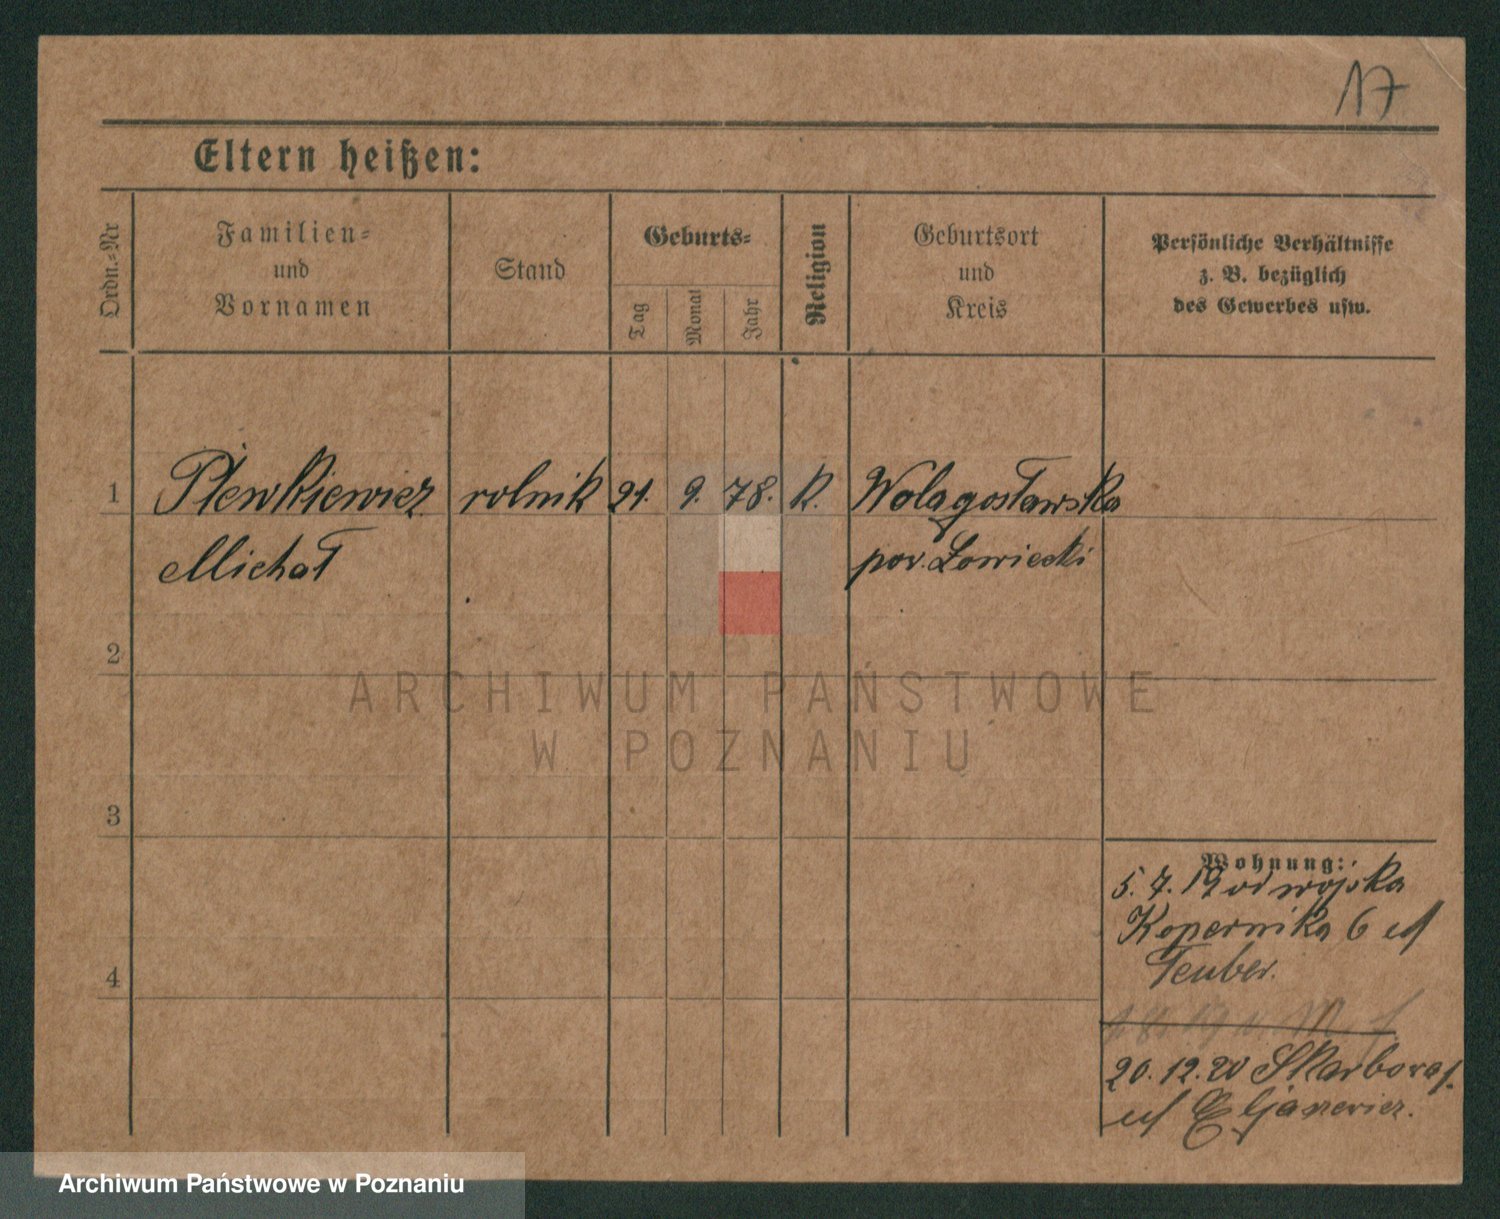 17
Eltern heißen:
Ordn.-Nr
Familien-
und
Vornamen
Stand
Geburts-
Tag
Monat
Jahr
Religion
Geburtsort
und
Kreis
Persönliche Verhältnisse
z. B. bezüglich
des Gewerbes usw.
1
Plewkiewicz rolnik 21. 9. 78. K. Wolagosławska
Michał pow. Łowiecki
2
ARCHIWUM PAŃSTWOWE
W POZNANIU
3
Wohnung:
5. 7. 19 od wojska
Kopernika 6
Teuber.
4
20. 12. 20
Archiwum Państwowe w Poznaniu